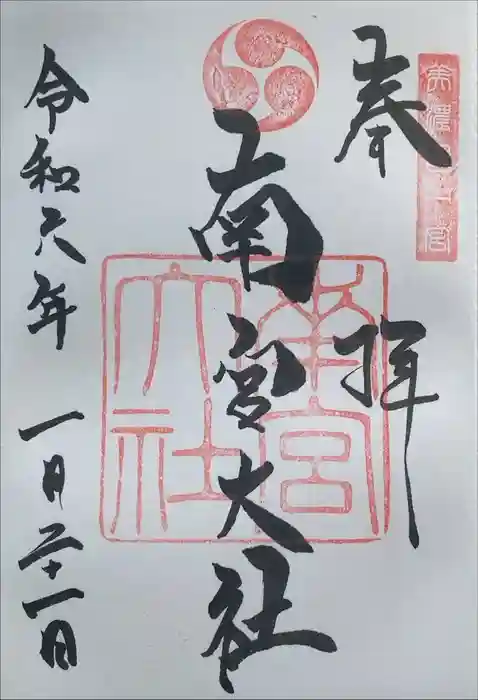 奉拝
南宮大社
令和六年 一月二十一日
南宮大社